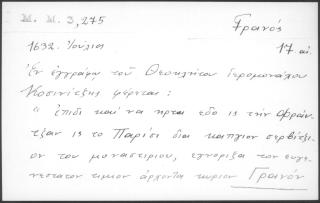 Μ. Μ. 3, 275
Γρανός
1632. Ἰούλιος
17 αἰ.
Ἐν ἐγγράφῳ τοῦ Θεοκλήτου ἱερομονάχου
Κοσινίτζης φέρεται:
"ἐπιδὶ καὶ να ηρται εδο ις τὴν Φράν-
τζαν ις το Παρίσι δια καπιον σερβίτζι-
ον του μοναστιριου, εγνορίξα τον ευγε-
νεστατον τιμιον ἀρχοντα κυριον Γρανόν